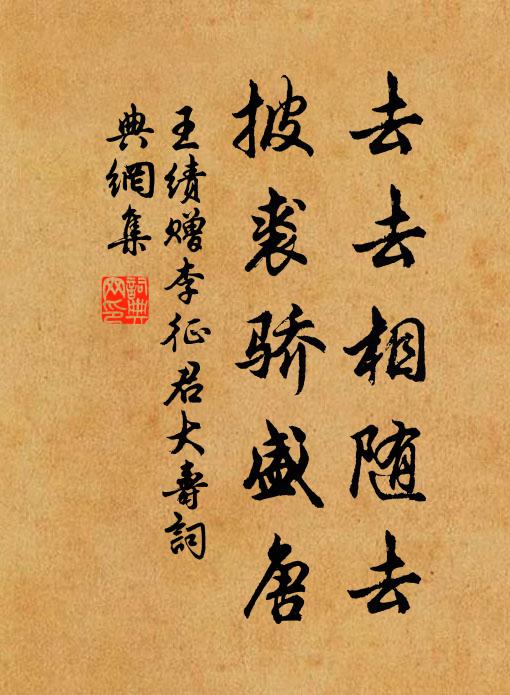 去去相随去
披裘骄盛唐
王绩赠李征君大寿詞
典網集
詞典網印